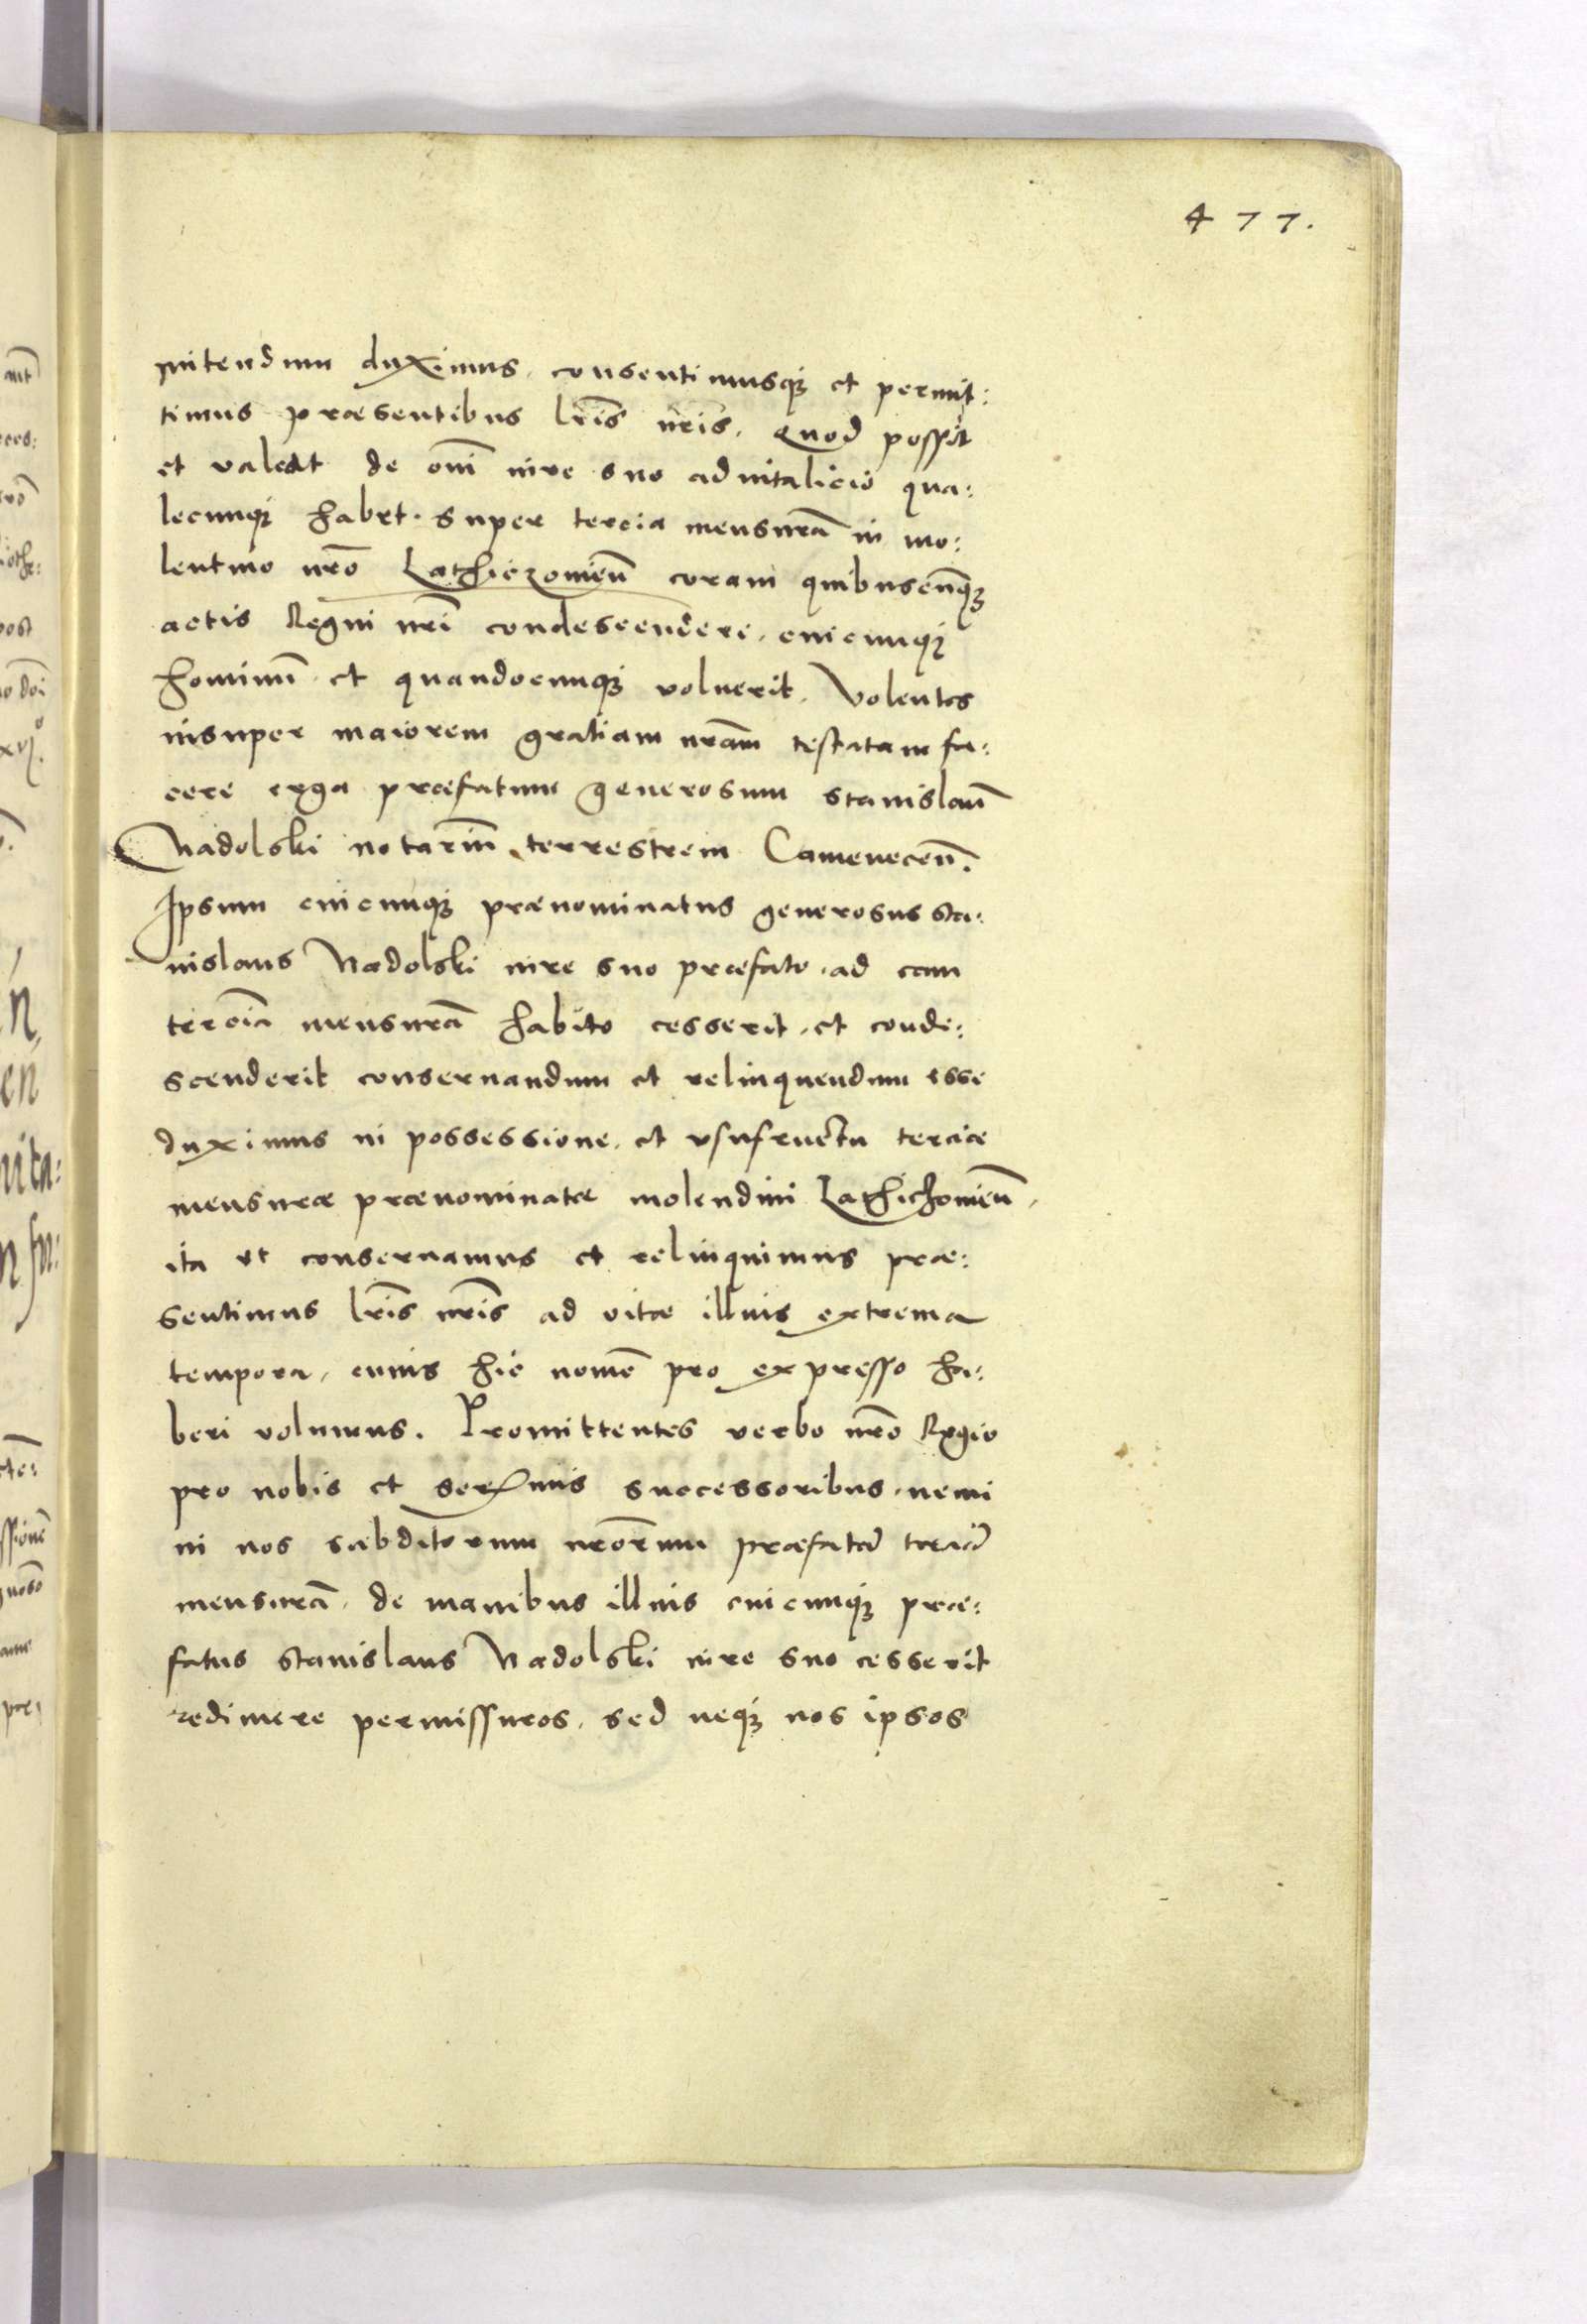 477.
mitendum duximus, consentimusq₃ et permit:
timus præsentibus lr̃is nr̃is, Quod possit
et valeat de om̃i iure suo aduitalicio qua:
lecunq₃ habet super tercia mensurã in mo:
lentino nr̃o Lathiczouieñ coram quibuscunq₃
actis Regni nr̃i condescendere, cuicunq₃
hominũ et quandocunq₃ voluerit, Volentes
insuper maiorem gratiam nr̃am testatam fa:
cere erga præfatum generosum Stanislaũ
Nadolski notariũ terrestrem Camenecen̄.
Ipsum cuicunq₃ prænominatus generosus Sta:
nislaus Nadolski iure suo præfato ad eam
terciã mensurã habito cesserit, et conde:
scenderit conseruandum et relinquendum esse
duximus in possessione, et vsufructu terciæ
mensuræ prænominatæ molendini Lathichouieñ,
ita vt conseruamus et relinquimus præ:
sentimus lr̃is nr̃is ad vitæ illius extrema
tempora, cuius hic nomẽ pro expresso ha:
beri volumus. Promittentes verbo nr̃o Regio
pro nobis et Serx̃mis successoribus, nemi
ni nos subditorum nr̃orum præfatã terciã
mensurã, de manibus illius cuicunq₃ præ:
fatus Stanislaus Nadolski iure suo cesserit
redimere permissuros, sed neq₃ nos ipsos